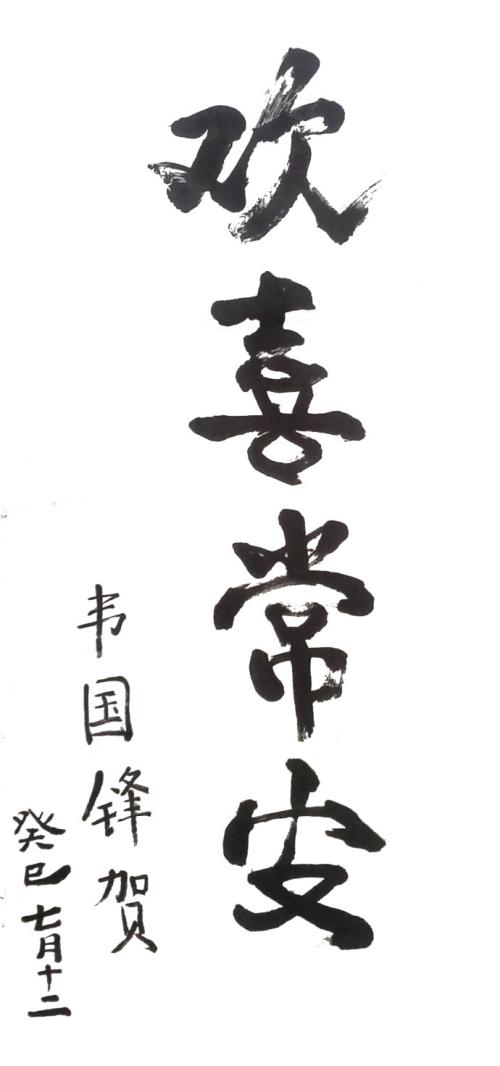 欢喜常安
韦国锋贺
癸巳七月十二